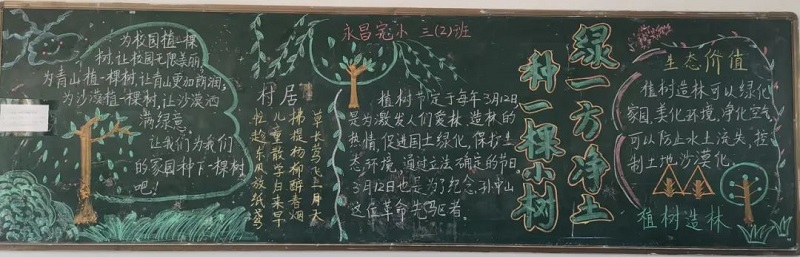 为校园植一棵
树,让校园无限美丽,
为青山植一棵树,让青山更加颜润,
为沙漠植一棵树,让沙漠洒
满绿意。
让我们为我们
的家园种下一棵树
吧!
村居
草长莺飞二月天
拂堤杨柳醉春烟
儿童散学归来早
忙趁东风放纸鸢
永昌宛小 三(2)班
植树节定于每年3月12日
是为激发人们爱林造林的
热情,促进国土绿化,保护生
态环境,通过立法确定的节日
3月12日也是为了纪念孙中山
这位革命先驱者。
种一棵小树
绿一方净土
生态价值
植树造林可以绿化
家园,美化环境,净化空气
可以防止水土流失,控
制土地沙漠化。
植树造林